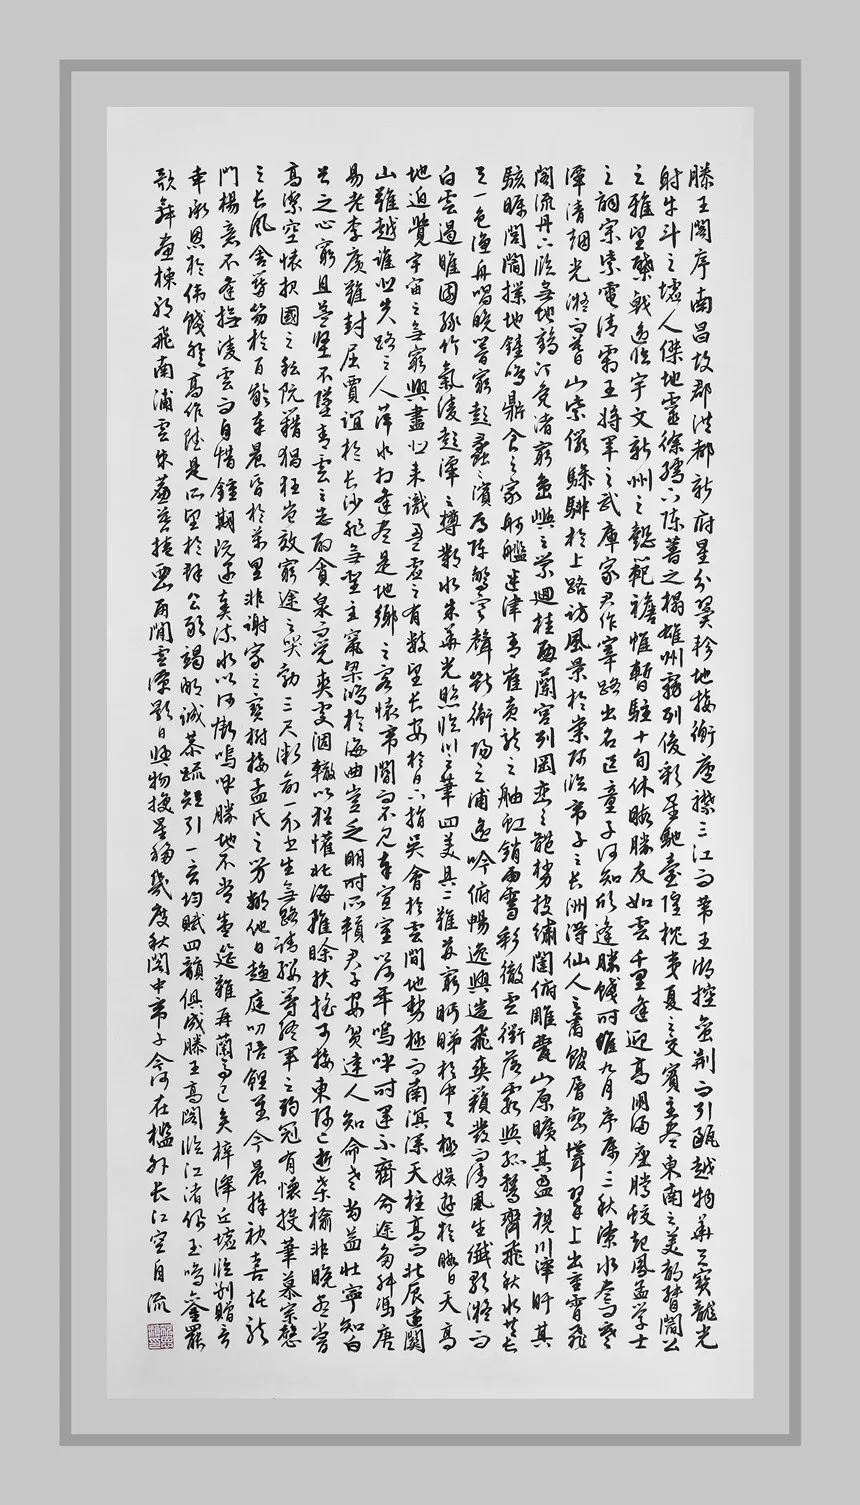 滕王閣序南昌故郡洪都新府星分翼軫地接衡廬襟三江而帶五湖控蠻荊而引甌越物華天寶龍光
射牛斗之墟人傑地靈徐孺下陳蕃之榻雄州霧列俊彩星馳臺隍枕夷夏之交賓主盡東南之美都督閻公
之雅望棨戟遙臨宇文新州之懿範襜帷暫駐十旬休暇勝友如雲千里逢迎高朋滿座騰蛟起鳳孟學士
之詞宗紫電清霜王將軍之武庫家君作宰路出名區童子何知躬逢勝餞時維九月序屬三秋潦水盡而寒
潭清煙光凝而暮山紫儼驂騑於上路訪風景於崇阿臨帝子之長洲得仙人之舊館層巒聳翠上出重霄飛
閣流丹下臨無地鶴汀鳧渚窮島嶼之縈迴桂殿蘭宮列岡巒之體勢披繡闥俯雕甍山原曠其盈視川澤盱其
駭矚閭閻撲地鐘鳴鼎食之家舸艦迷津青雀黃龍之舳虹銷雨霽彩徹雲衢落霞與孤鶩齊飛秋水共長
天一色漁舟唱晚響窮彭蠡之濱雁陣驚寒聲斷衡陽之浦遙吟俯暢逸興遄飛爽籟發而清風生纖歌凝而
白雲遏睢園綠竹氣淩彭澤之樽鄴水朱華光照臨川之筆四美具二難並窮眄睇於中天極娛遊於暇日天高
地迥覺宇宙之無窮興盡悲來識盈虛之有數望長安於日下指吳會於雲間地勢極而南溟深天柱高而北辰遠關
山難越誰悲失路之人萍水相逢盡是他鄉之客懷帝閽而不見奉宣室以何年嗚呼時運不齊命途多舛馮唐
易老李廣難封屈賈誼於長沙非無聖主竄梁鴻於海曲豈乏明時所賴君子安貧達人知命老當益壯寧知白
首之心窮且益堅不墜青雲之志酌貪泉而覺爽處涸轍以猶懽北海雖賒扶搖可接東隅已逝桑榆非晚孟嘗
高潔空懷報國之阮籍猖狂豈效窮途之哭勃三尺微命一介書生無路請纓等終軍之弱冠有懷投筆慕宗愨
之長風舍簪笏於百齡奉晨昏於萬里非謝家之寶樹接孟氏之芳鄰他日趨庭叨陪鯉對今晨捧袂喜托龍
門楊意不逢撫淩雲而自惜鍾期既遇奏流水以何慚嗚呼勝地不常盛筵難再蘭亭已矣梓澤丘墟臨別贈言
幸承恩於偉餞登高作賦是所望於群公敢竭鄙誠恭疏短引一言均賦四韻俱成滕王高閣臨江渚佩玉鳴鸞罷
歌舞畫棟朝飛南浦雲朱簾暮捲西雨閒雲潭影日悠物換星移幾度秋閣中帝子今何在檻外長江空自流